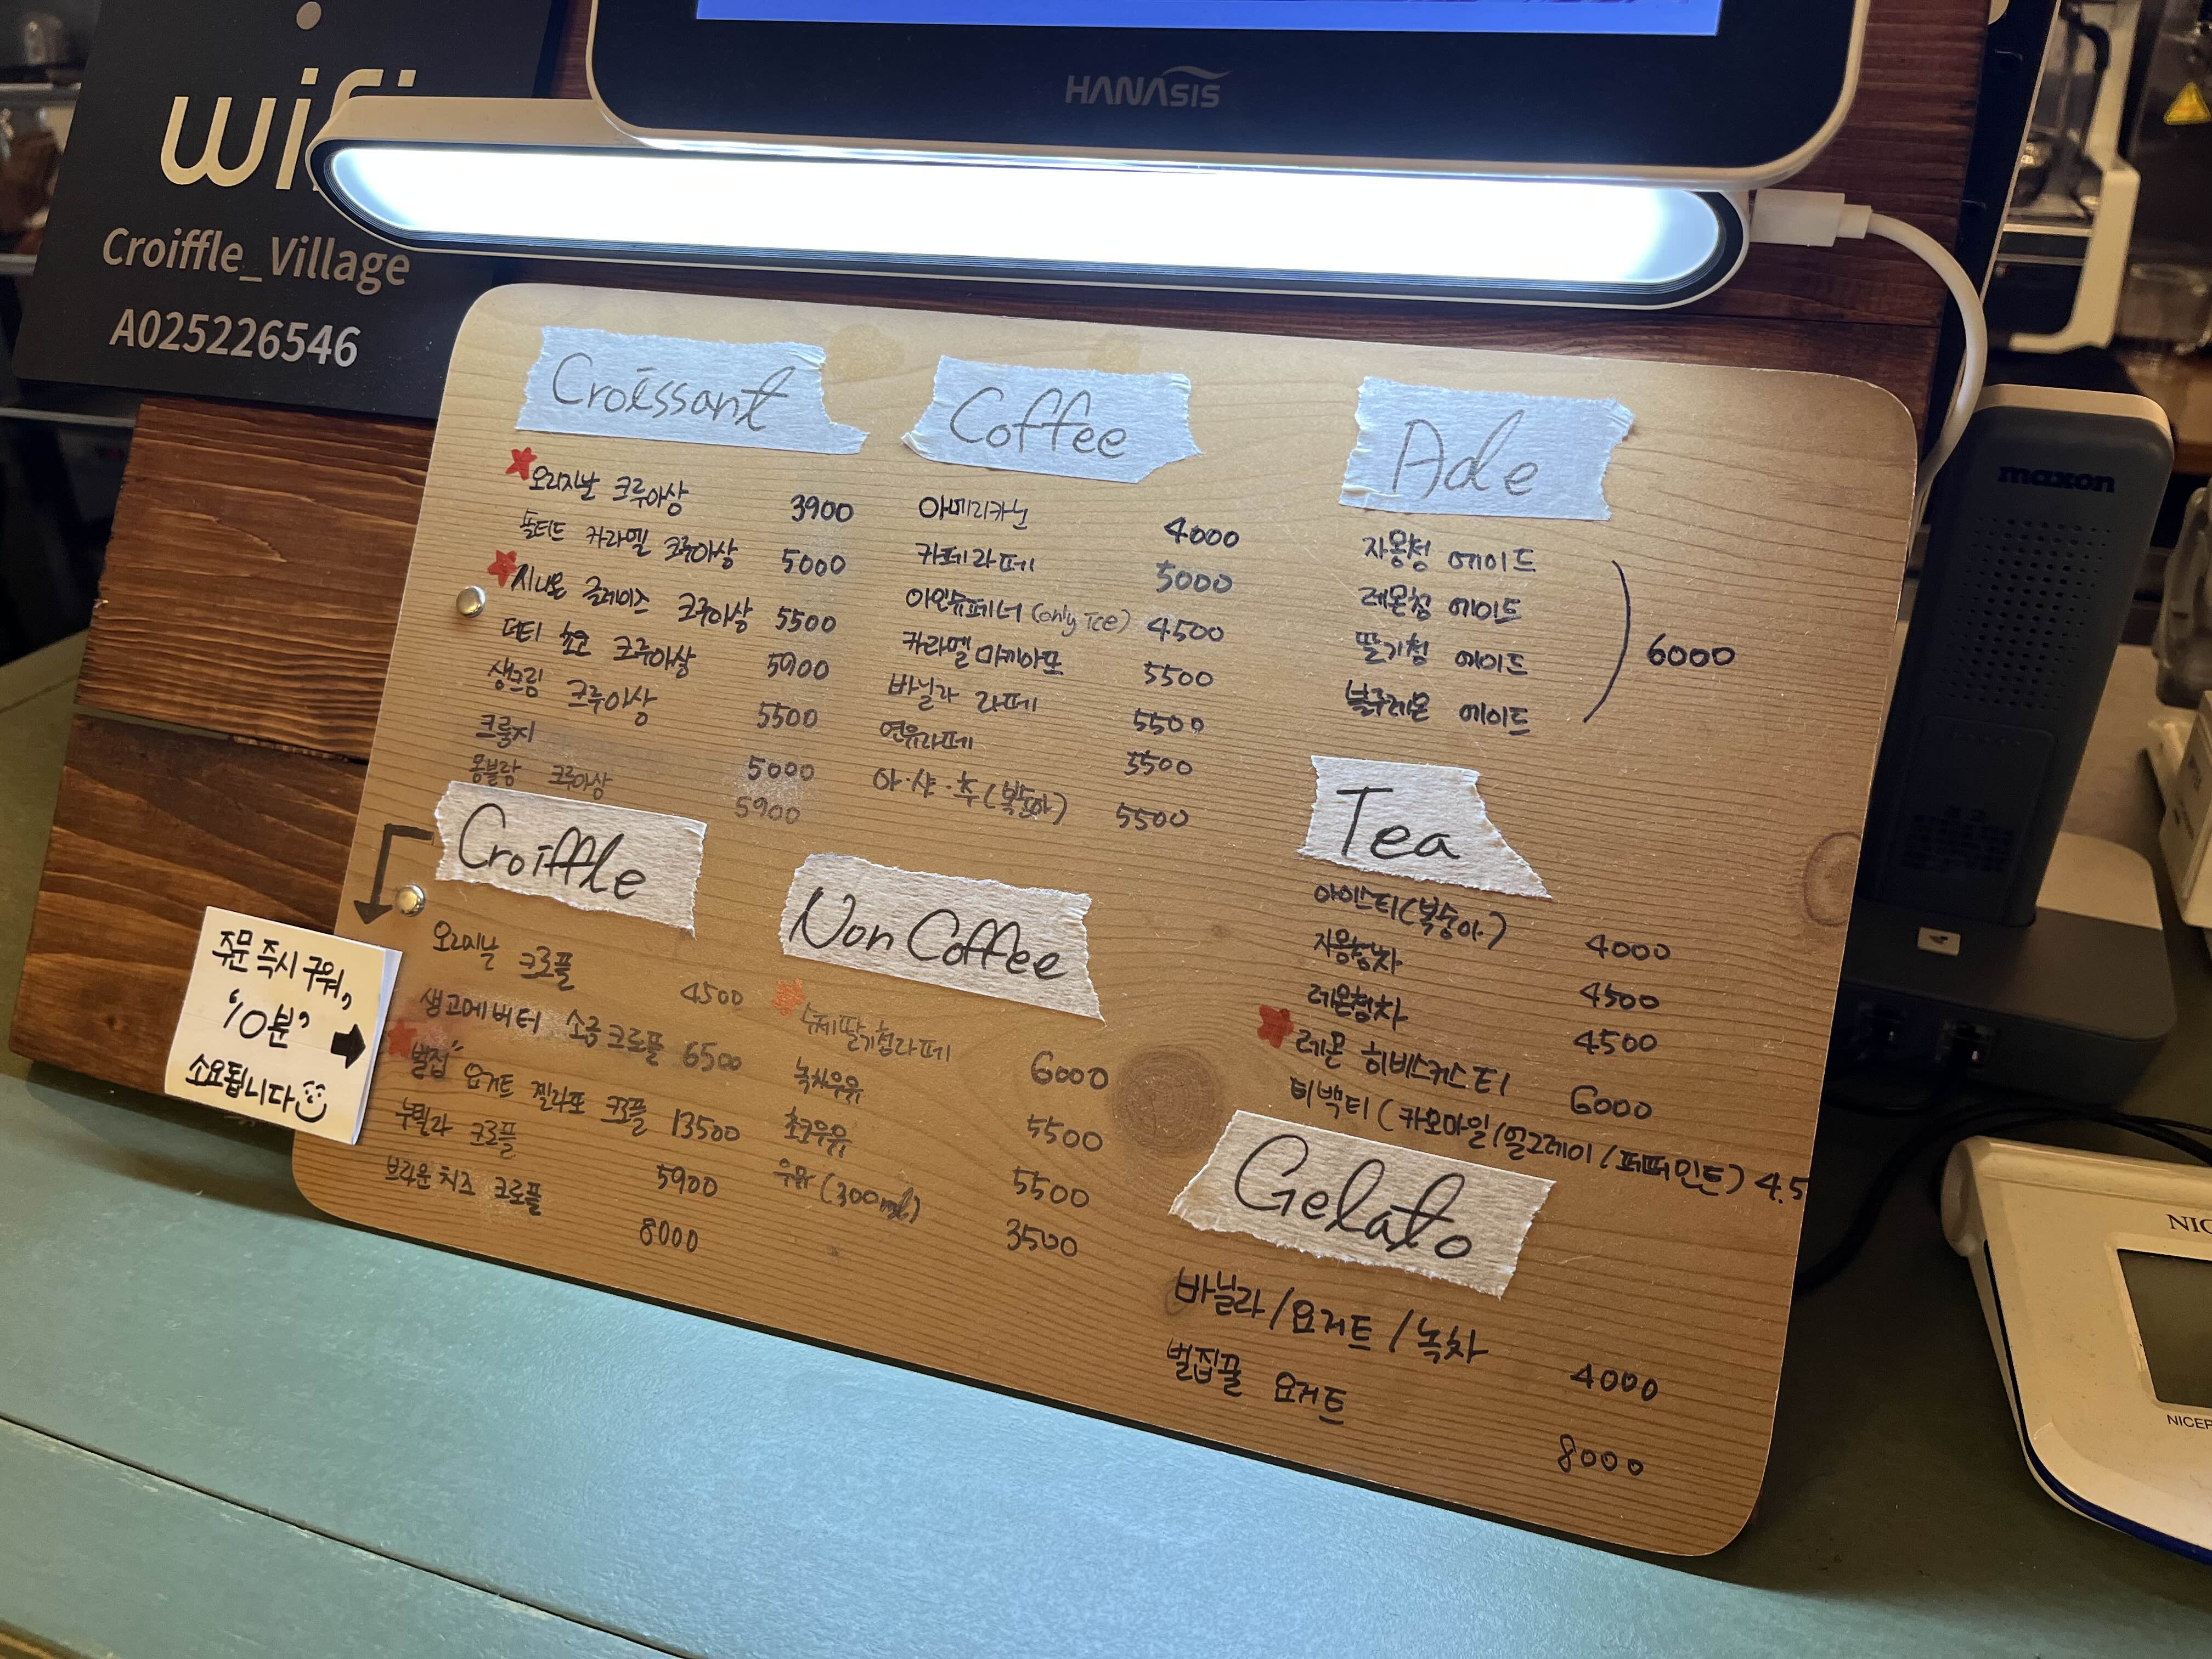 wifi
Croiffle_Village
A025226546
HANASIS
maxon
Croissant
오리지날 크루아상 3900
솔티드 카라멜 크루아상 5000
시나몬 글레이즈 크루아상 5500
더티 초코 크루아상 5900
생크림 크루아상 5500
크룽지 5000
몽블랑 크루아상 5900
Croiffle
오리지날 크로플 4500
생고메버터 소금 크로플 6500
"벌집" 요거트 젤라또 크로플 13500
누텔라 크로플 5900
브라운치즈 크로플 8000
주문 즉시 구워,
'10분'
소요됩니다
Coffee
아메리카노 4000
카페라떼 5000
아인슈페너 (only Ice) 4500
카라멜 마끼아또 5500
바닐라 라떼 5500
연유라떼 5500
아·샷·추 (복숭아) 5500
Non Coffee
수제딸기청라떼 6000
녹차우유 5500
초코우유 5500
우유 (300ml) 3500
Ade
자몽청 에이드
레몬청 에이드
딸기청 에이드
블루레몬 에이드
6000
Tea
아이스티(복숭아) 4000
자몽청차 4500
레몬청차 4500
레몬 히비스커스티 6000
티백티 (카모마일/얼그레이/페퍼민트) 4.5
Gelato
바닐라/요거트/녹차 4000
벌집꿀 요거트 8000